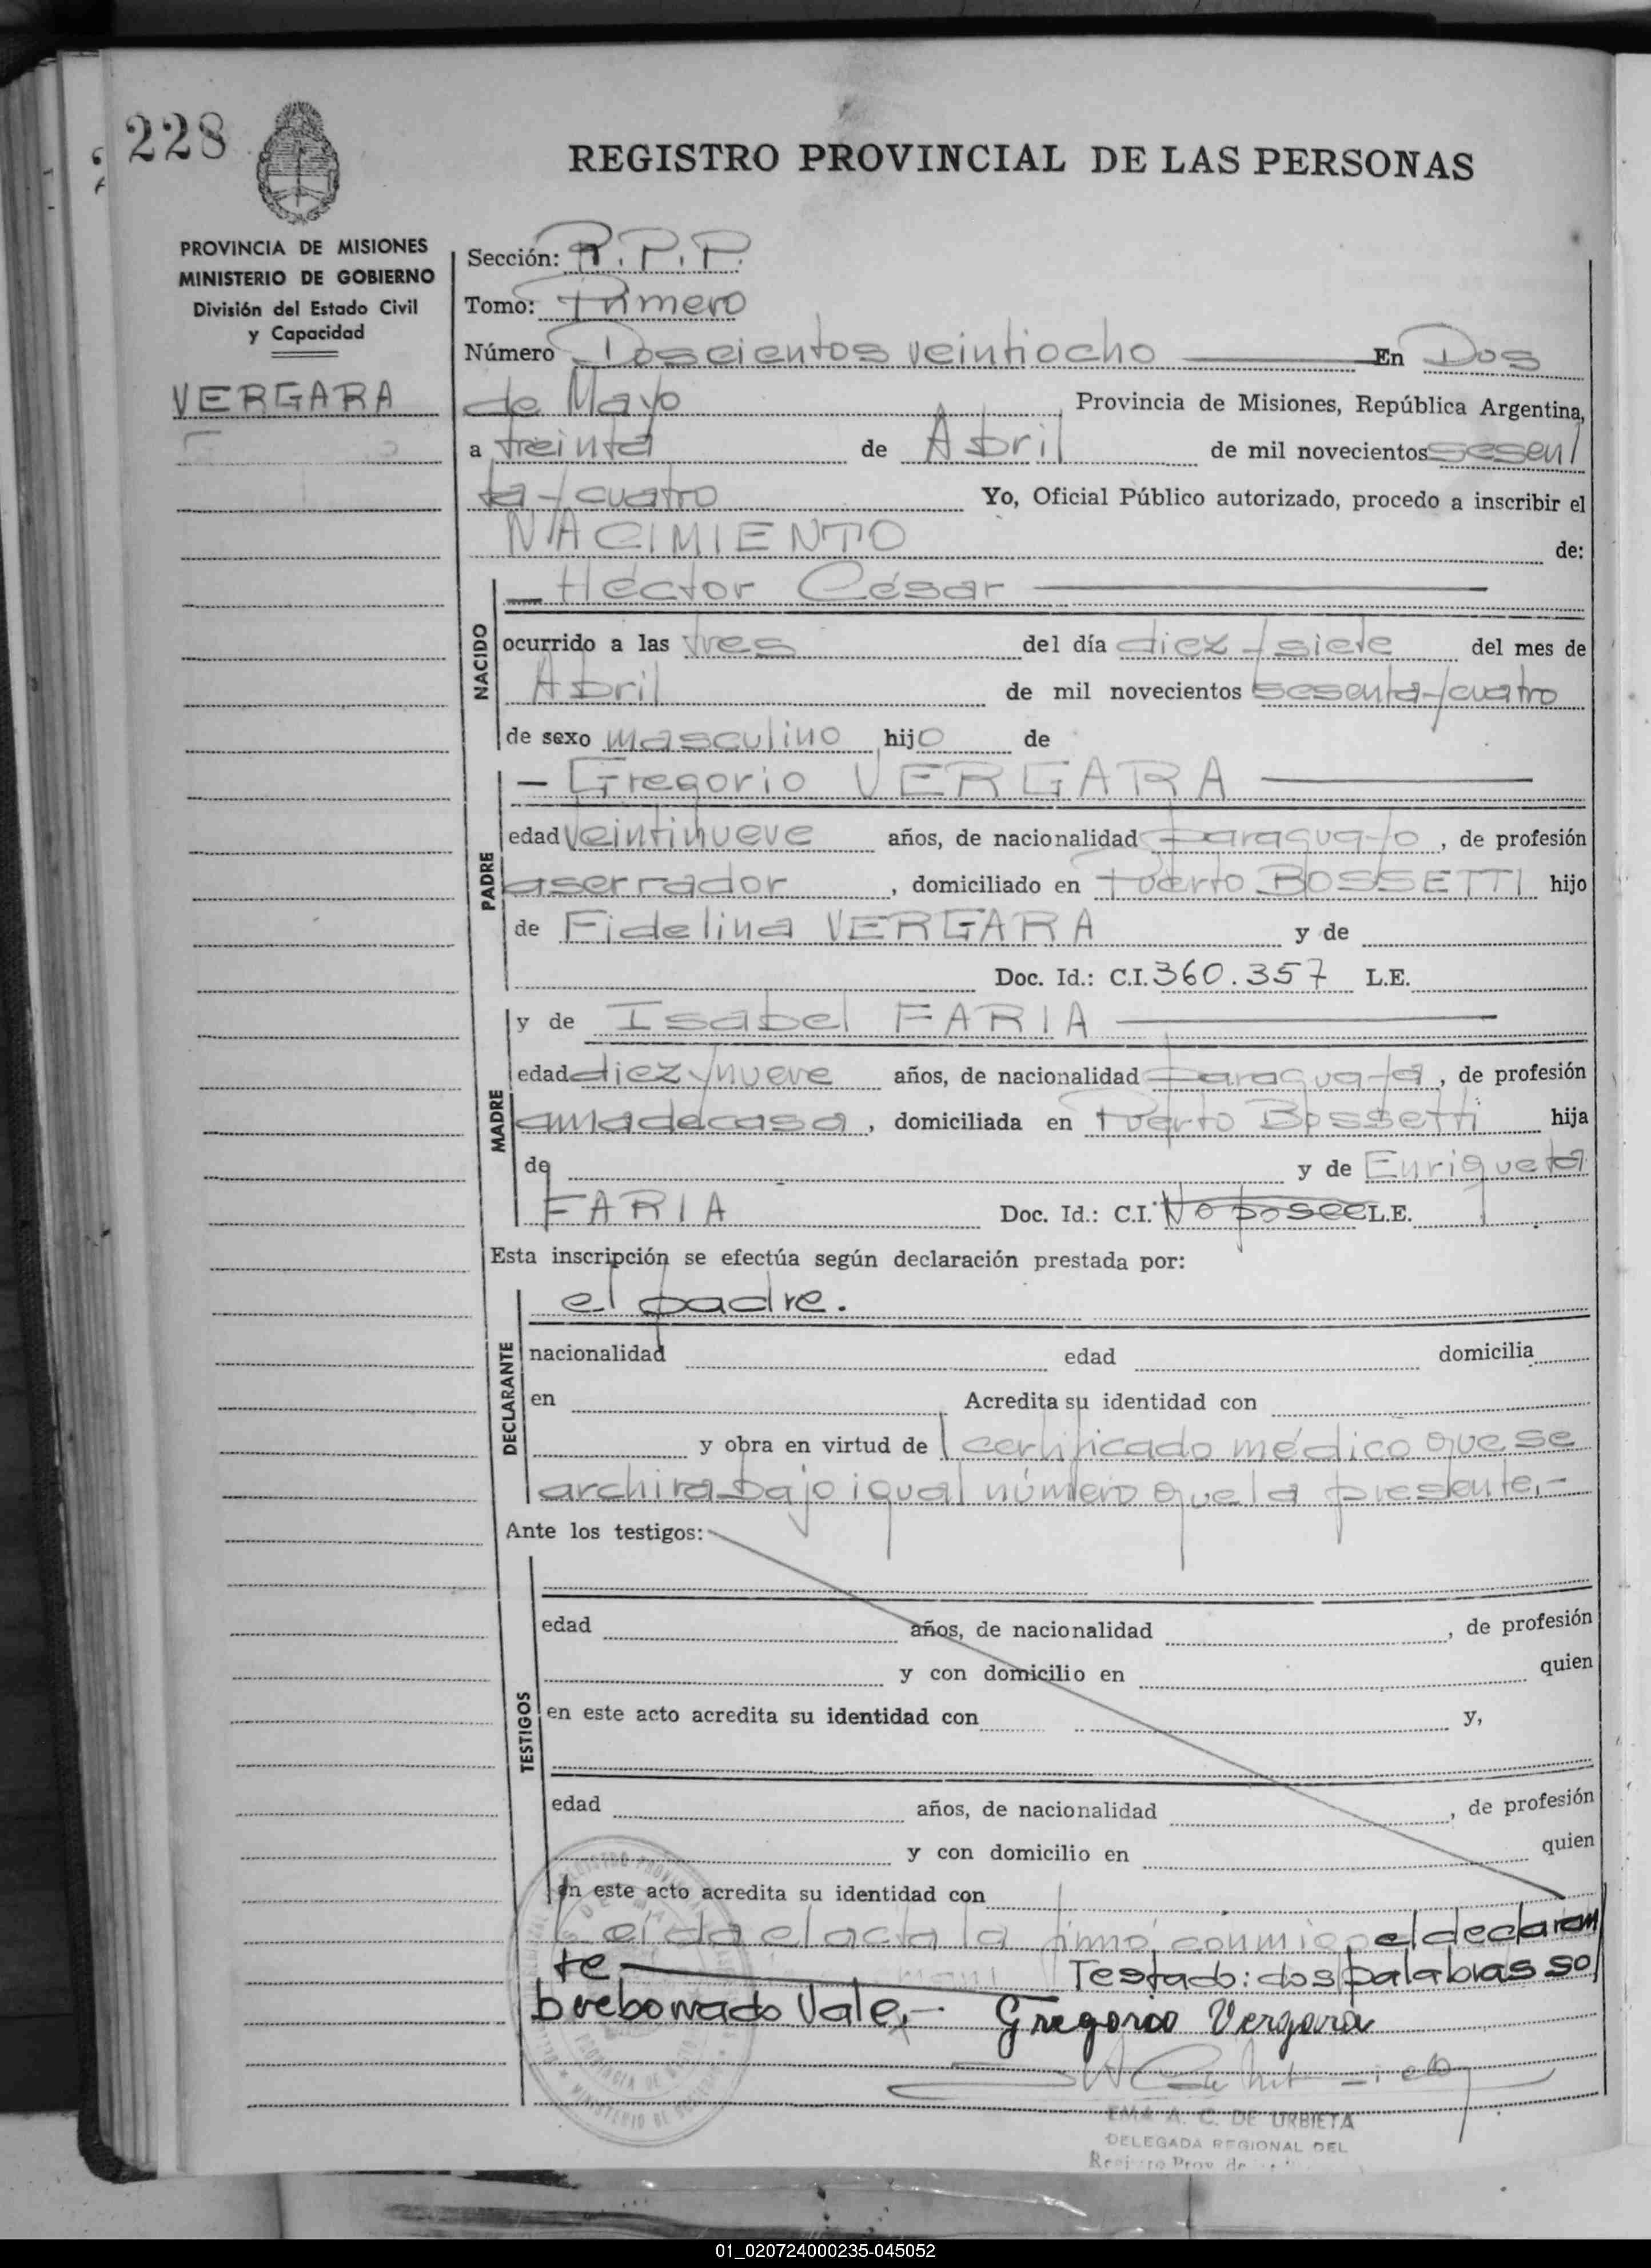 228
REGISTRO PROVINCIAL DE LAS PERSONAS
PROVINCIA DE MISIONES
MINISTERIO DE GOBIERNO
División del Estado Civil
y Capacidad
VERGARA
Sección: R.P.P.
Tomo: Primero
Número Doscientos veintiocho En Dos
de Mayo Provincia de Misiones, República Argentina,
a treinta de Abril de mil novecientos sesen/
ta y cuatro Yo, Oficial Público autorizado, procedo a inscribir el
NACIMIENTO de:
NACIDO
— Héctor César —
ocurrido a las tres del día diez y siete del mes de
Abril de mil novecientos sesenta y cuatro
de sexo masculino hijo de
PADRE
— Gregorio VERGARA —
edad veintinueve años, de nacionalidad paraguayo, de profesión
aserrador, domiciliado en Puerto BOSSETTI hijo
de Fidelina VERGARA y de
Doc. Id.: C.I. 360.357 L.E.
MADRE
y de Isabel FARIA —
edad diez y nueve años, de nacionalidad paraguaya, de profesión
ama de casa, domiciliada en Puerto Bossetti hija
de y de Enriqueta
FARIA Doc. Id.: C.I. No posee L.E.
Esta inscripción se efectúa según declaración prestada por:
DECLARANTE
el padre.
nacionalidad edad domicilia
en Acredita su identidad con
y obra en virtud de certificado médico que se
archiva bajo igual número que la presente.-
Ante los testigos:
TESTIGOS
edad años, de nacionalidad , de profesión
y con domicilio en quien
en este acto acredita su identidad con y,
edad años, de nacionalidad , de profesión
y con domicilio en quien
en este acto acredita su identidad con
Leída el acta la firmó conmigo el declaran
te — Testado: dos palabras so/
breborrado Vale.- Gregorio Vergara
EMA A. C. DE URBIETA
DELEGADA REGIONAL DEL
01_020724000235-045052